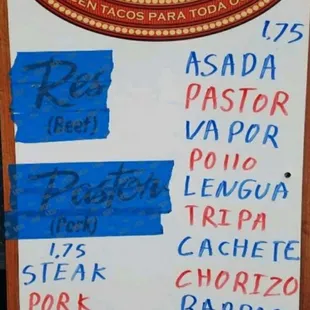 EN TACOS PARA TODA O
1.75
Res
(Beef)
Pastor
(Pork)
1.75
STEAK
PORK
ASADA
PASTOR
VAPOR
POllO
LENGUA
TRIPA
CACHETE
CHORIZO